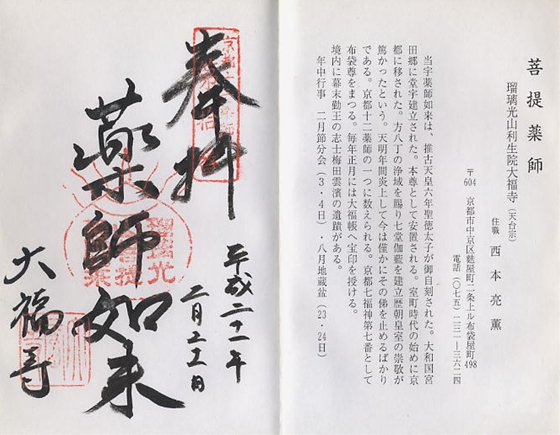 菩提薬師
瑠璃光山利生院大福寺(天台宗)
住職 西本亮薫
〒604 京都市中京区麩屋町二条上ル布袋屋町498
電話(〇七五)二三一-三六二四
当宇薬師如来は、推古天皇六年聖徳太子が御自刻された。大和国宮
田郷に堂宇建立された。本尊として安置される。室町時代の始めに京
都に移された。方八丁の浄域を賜り七堂伽藍を建立歴朝皇室の崇敬が
篤かったという。天明年間炎上して今は僅かにその佛を止めるばかり
である。京都十二薬師の一つに数えられる。京都七福神第七番として
布袋尊をまつる。毎年正月には大福帳へ宝印を授ける。
境内に幕末勤王の志士梅田雲濱の遺蹟がある。
年中行事 二月節分会(3・4日)・八月地蔵盆(23・24日)
奉拝
平成二十一年
薬師如来
大福寺